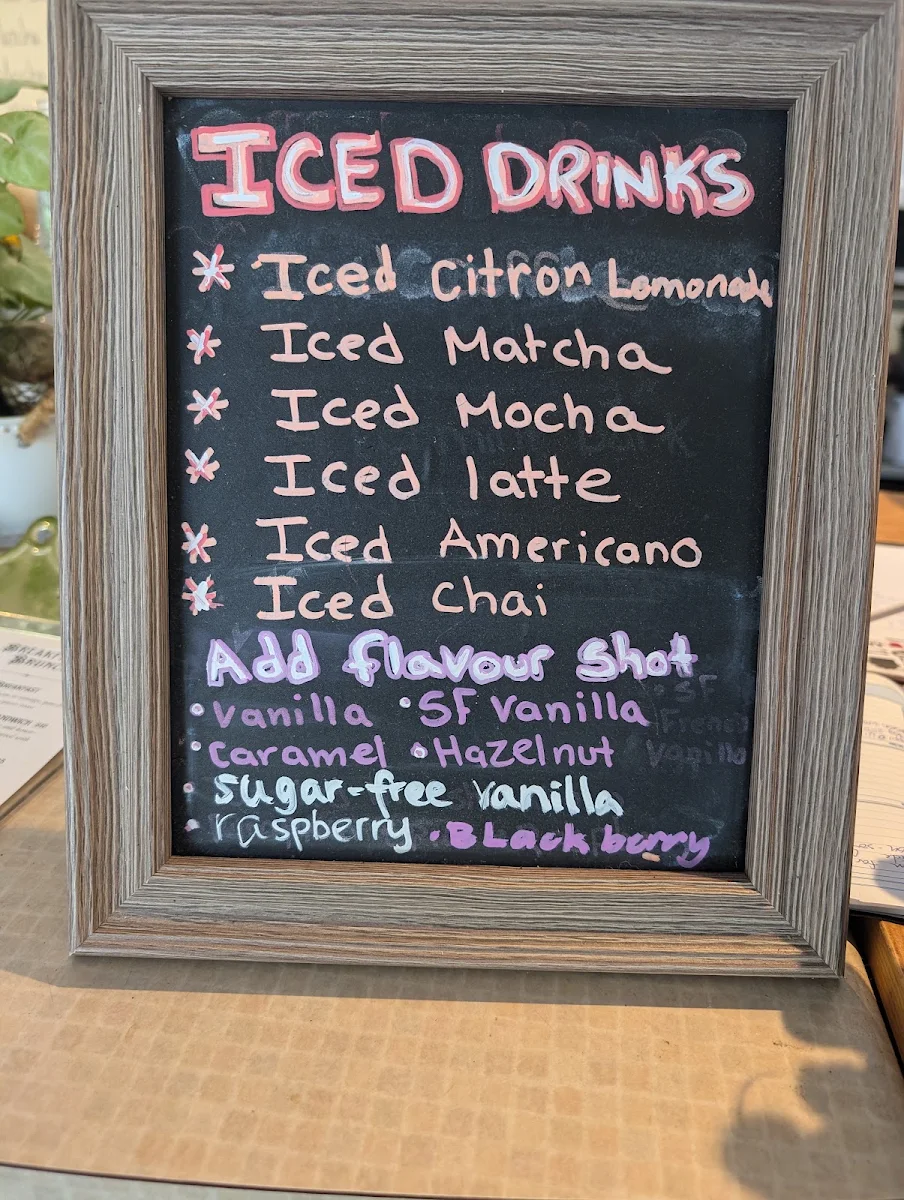 ICED DRINKS
* Iced Citron Lemonade
* Iced Matcha
* Iced Mocha
* Iced latte
* Iced Americano
* Iced Chai
Add flavour shot
• vanilla • SF vanilla
• caramel • Hazelnut
• sugar-free vanilla
• raspberry • BLackberry
SF
French
Vanilla